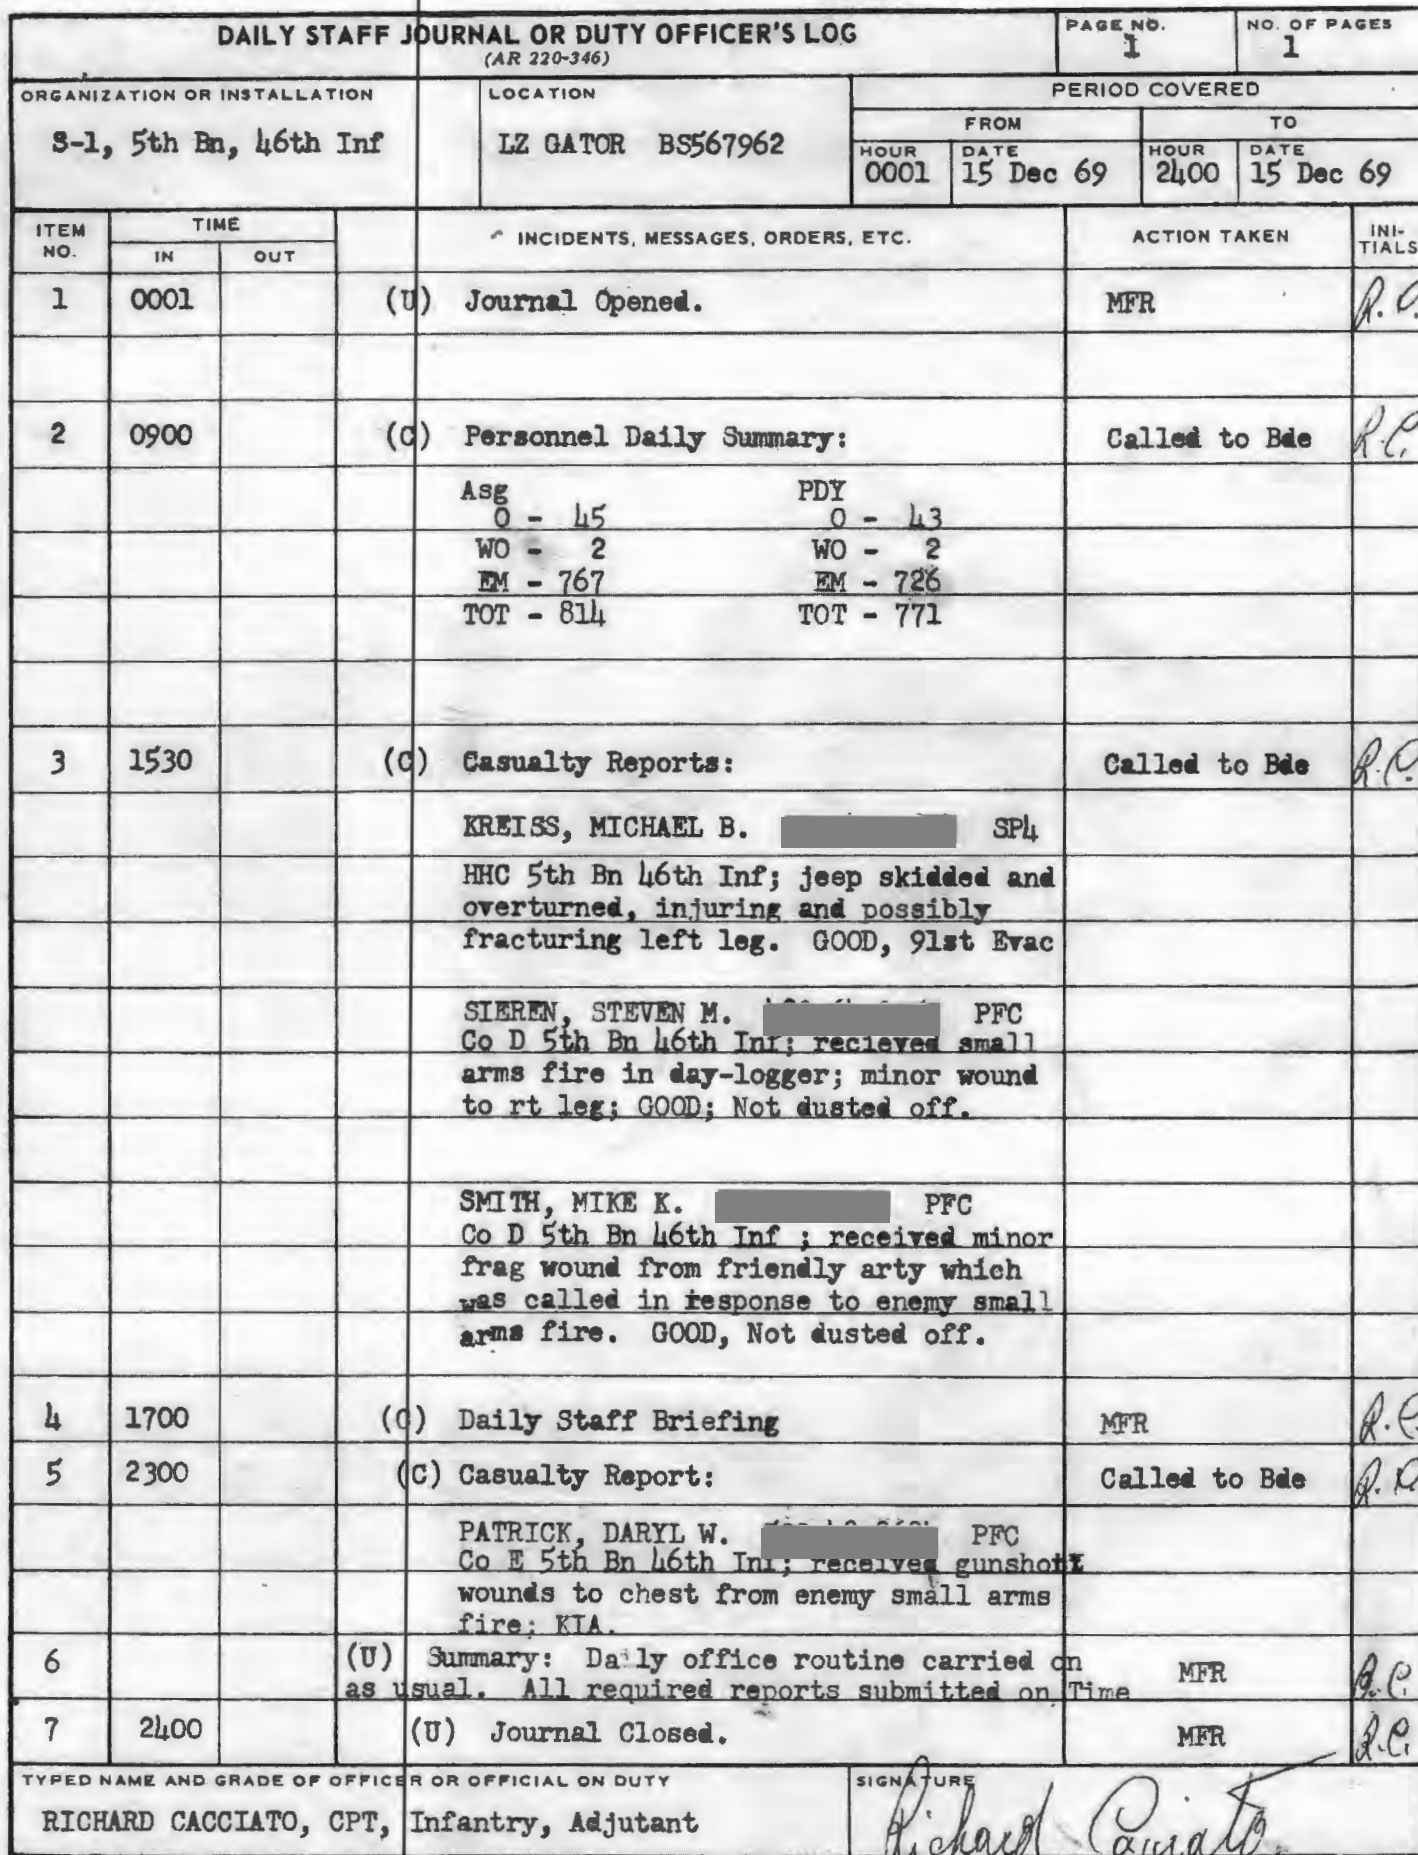 DAILY STAFF JOURNAL OR DUTY OFFICER'S LOG
(AR 220-346)
PAGE NO.
1
NO. OF PAGES
1
ORGANIZATION OR INSTALLATION
S-1, 5th Bn, 46th Inf
LOCATION
LZ GATOR BS567962
PERIOD COVERED
FROM
TO
HOUR
0001
DATE
15 Dec 69
HOUR
2400
DATE
15 Dec 69
ITEM NO.
TIME
IN
OUT
INCIDENTS, MESSAGES, ORDERS, ETC.
ACTION TAKEN
INI-
TIALS
1 0001 (U) Journal Opened. MFR R.C.
2 0900 (C) Personnel Daily Summary: Called to Bde R.C.
Asg PDY
O - 45 O - 43
WO - 2 WO - 2
EM - 767 EM - 726
TOT - 814 TOT - 771
3 1530 (C) Casualty Reports: Called to Bde R.C.
KREISS, MICHAEL B. SP4
HHC 5th Bn 46th Inf; jeep skidded and
overturned, injuring and possibly
fracturing left leg. GOOD, 91st Evac
SIEREN, STEVEN M. PFC
Co D 5th Bn 46th Inf; recieved small
arms fire in day-logger; minor wound
to rt leg; GOOD; Not dusted off.
SMITH, MIKE K. PFC
Co D 5th Bn 46th Inf ; received minor
frag wound from friendly arty which
was called in response to enemy small
arms fire. GOOD, Not dusted off.
4 1700 (C) Daily Staff Briefing MFR R.C.
5 2300 (C) Casualty Report: Called to Bde R.C.
PATRICK, DARYL W. PFC
Co E 5th Bn 46th Inf; received gunshot
wounds to chest from enemy small arms
fire; KIA.
6 (U) Summary: Daily office routine carried on
as usual. All required reports submitted on Time MFR R.C.
7 2400 (U) Journal Closed. MFR R.C.
TYPED NAME AND GRADE OF OFFICER OR OFFICIAL ON DUTY
RICHARD CACCIATO, CPT, Infantry, Adjutant
SIGNATURE
Richard Cacciato